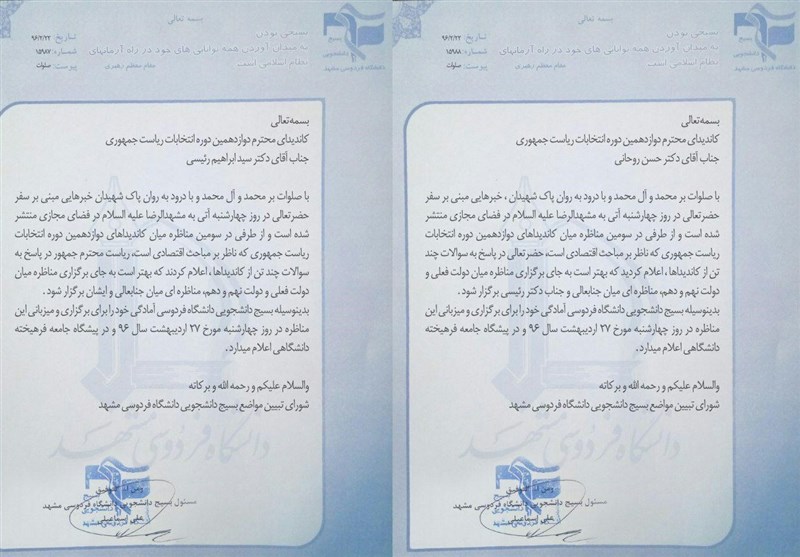 بسمه تعالی
بسیجی بودن
به میدان آوردن همه توانایی های خود در راه آرمانهای
نظام اسلامی است
مقام معظم رهبری
تاریخ: ۹۶/۲/۲۳
شماره: ۱۵۹۸۸
پیوست: صلوات
بسیج
دانشجویی
دانشگاه فردوسی مشهد
بسمه تعالی
کاندیدای محترم دوازدهمین دوره انتخابات ریاست جمهوری
جناب آقای دکتر حسن روحانی
با صلوات بر محمد و آل محمد و با درود به روان پاک شهیدان ، خبرهایی مبنی بر سفر
حضرتعالی در روز چهارشنبه آتی به مشهدالرضا علیه السلام در فضای مجازی منتشر
شده است و از طرفی در سومین مناظره میان کاندیداهای دوازدهمین دوره انتخابات
ریاست جمهوری که ناظر بر مباحث اقتصادی است، حضرتعالی در پاسخ به سوالات چند
تن از کاندیداها ، اعلام کردید که بهتر است به جای برگزاری مناظره میان دولت فعلی و
دولت نهم و دهم، مناظره ای میان جنابعالی و جناب دکتر رئیسی برگزار شود .
بدینوسیله بسیج دانشجویی دانشگاه فردوسی آمادگی خود را برای برگزاری و میزبانی این
مناظره در روز چهارشنبه مورخ ۲۷ اردیبهشت سال ۹۶ و در پیشگاه جامعه فرهیخته
دانشگاهی اعلام میدارد .
والسلام علیکم و رحمه الله و برکاته
شورای تبیین مواضع بسیج دانشجویی دانشگاه فردوسی مشهد
دانشگاه فردوسی مشهد
و من الله التوفیق
مسئول بسیج دانشجویی دانشگاه فردوسی مشهد
علی اسماعیلی
بسمه تعالی
بسیجی بودن
به میدان آوردن همه توانایی های خود در راه آرمانهای
نظام اسلامی است
مقام معظم رهبری
تاریخ: ۹۶/۲/۲۳
شماره: ۱۵۹۸۷
پیوست: صلوات
بسیج
دانشجویی
دانشگاه فردوسی مشهد
بسمه تعالی
کاندیدای محترم دوازدهمین دوره انتخابات ریاست جمهوری
جناب آقای دکتر سید ابراهیم رئیسی
با صلوات بر محمد و آل محمد و با درود به روان پاک شهیدان، خبرهایی مبنی بر سفر
حضرتعالی در روز چهارشنبه آتی به مشهدالرضا علیه السلام در فضای مجازی منتشر
شده است و از طرفی در سومین مناظره میان کاندیداهای دوازدهمین دوره انتخابات
ریاست جمهوری که ناظر بر مباحث اقتصادی است، ریاست محترم جمهور در پاسخ به
سوالات چند تن از کاندیداها ، اعلام کردند که بهتر است به جای برگزاری مناظره میان
دولت فعلی و دولت نهم و دهم، مناظره ای میان جنابعالی و ایشان برگزار شود .
بدینوسیله بسیج دانشجویی دانشگاه فردوسی آمادگی خود را برای برگزاری و میزبانی این
مناظره در روز چهارشنبه مورخ ۲۷ اردیبهشت سال ۹۶ و در پیشگاه جامعه فرهیخته
دانشگاهی اعلام میدارد .
والسلام علیکم و رحمه الله و برکاته
شورای تبیین مواضع بسیج دانشجویی دانشگاه فردوسی مشهد
دانشگاه فردوسی مشهد
و من الله التوفیق
مسئول بسیج دانشجویی دانشگاه فردوسی مشهد
علی اسماعیلی